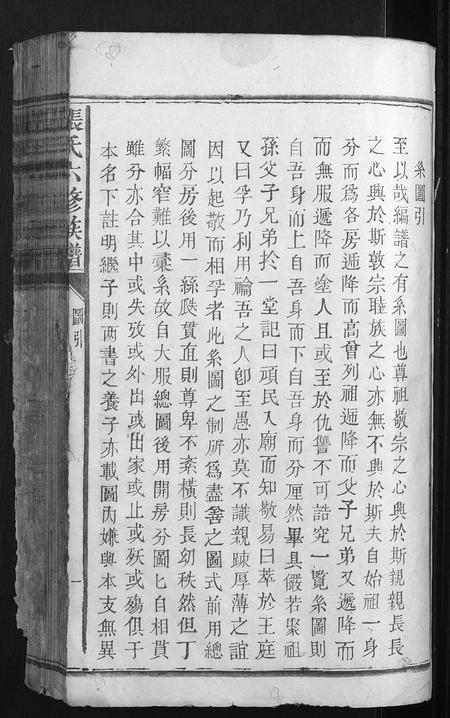 系圖引
至以哉編譜之有系圖也尊祖敬宗之心興於斯親親長長
之心興於斯敦宗睦族之心亦無不興於斯夫自始祖一身
分而爲各房遞降而高曾列祖遞降而父子兄弟又遞降而
而無服遞降而塗人且或至於仇讐不可詰究一覽系圖則
自吾身而上自吾身而下自吾身而分厘然畢具儼若聚祖
孫父子兄弟於一堂記曰頑民入廟而知敬易曰萃於王庭
又曰孚乃利用禴吾之人卽至愚亦莫不識親疎厚薄之誼
因以起敬而相孚者此系圖之制所爲盡善之圖式前用總
圖分房後用一絲貫直則尊卑不紊橫則長幼秩然但丁
繁幅窄難以彙系故自大服總圖後用開房分圖匕自相貫
雖分亦合其中或失攷或外出或出家或止或殀或殤俱于
本名下註明繼子則两書之養子亦載圖內嫌與本支無異
張氏六修族譜
圖引
一